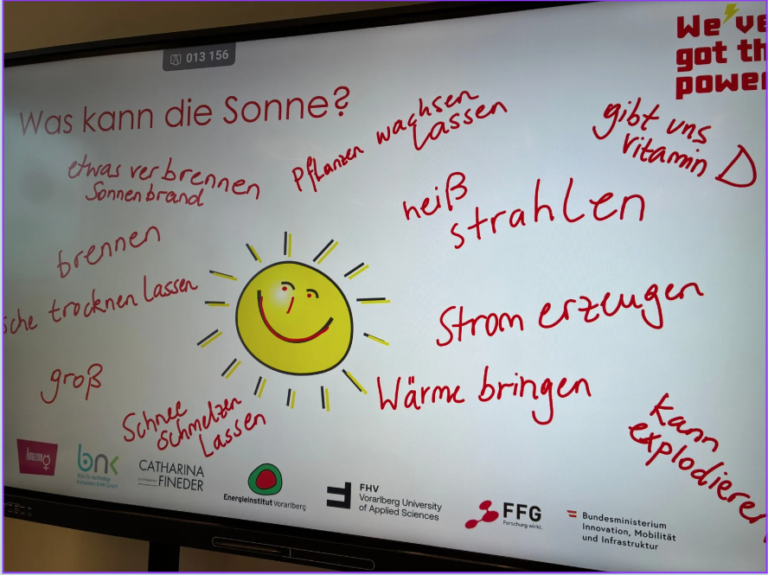 013 156
We've
got th
power
Was kann die Sonne?
etwas verbrennen
Sonnenbrand
Pflanzen wachsen
lassen
gibt uns
vitamin D
heiß
strahlen
brennen
sche trocknen lassen
Strom erzeugen
groß
Wärme bringen
Schnee
schmelzen
lassen
kann
explodieren
bnk
CATHARINA
FINEDER
Energieinstitut Vorarlberg
FHV
Vorarlberg University
of Applied Sciences
FFG
Forschung wirkt.
Bundesministerium
Innovation, Mobilität
und Infrastruktur